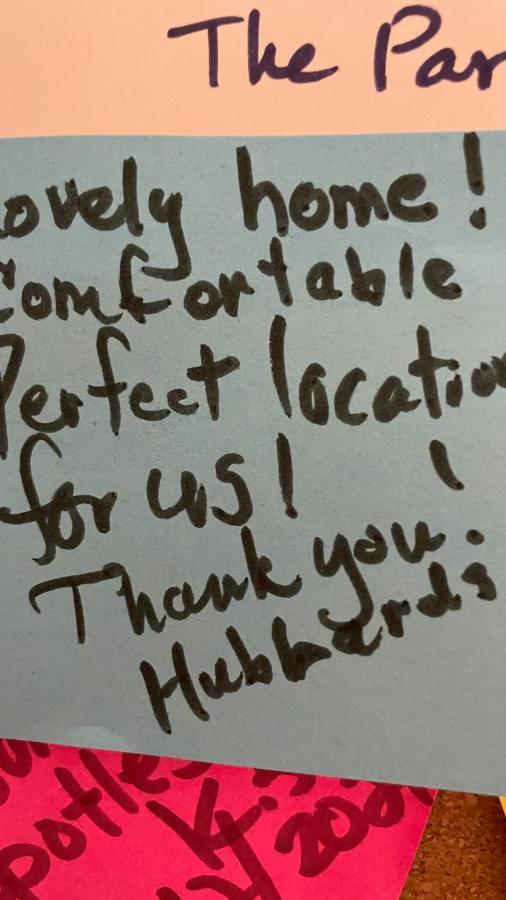 The Par
ovely home!
Comfortable
Perfect location
for us!
Thank you!
Hubbards
potles